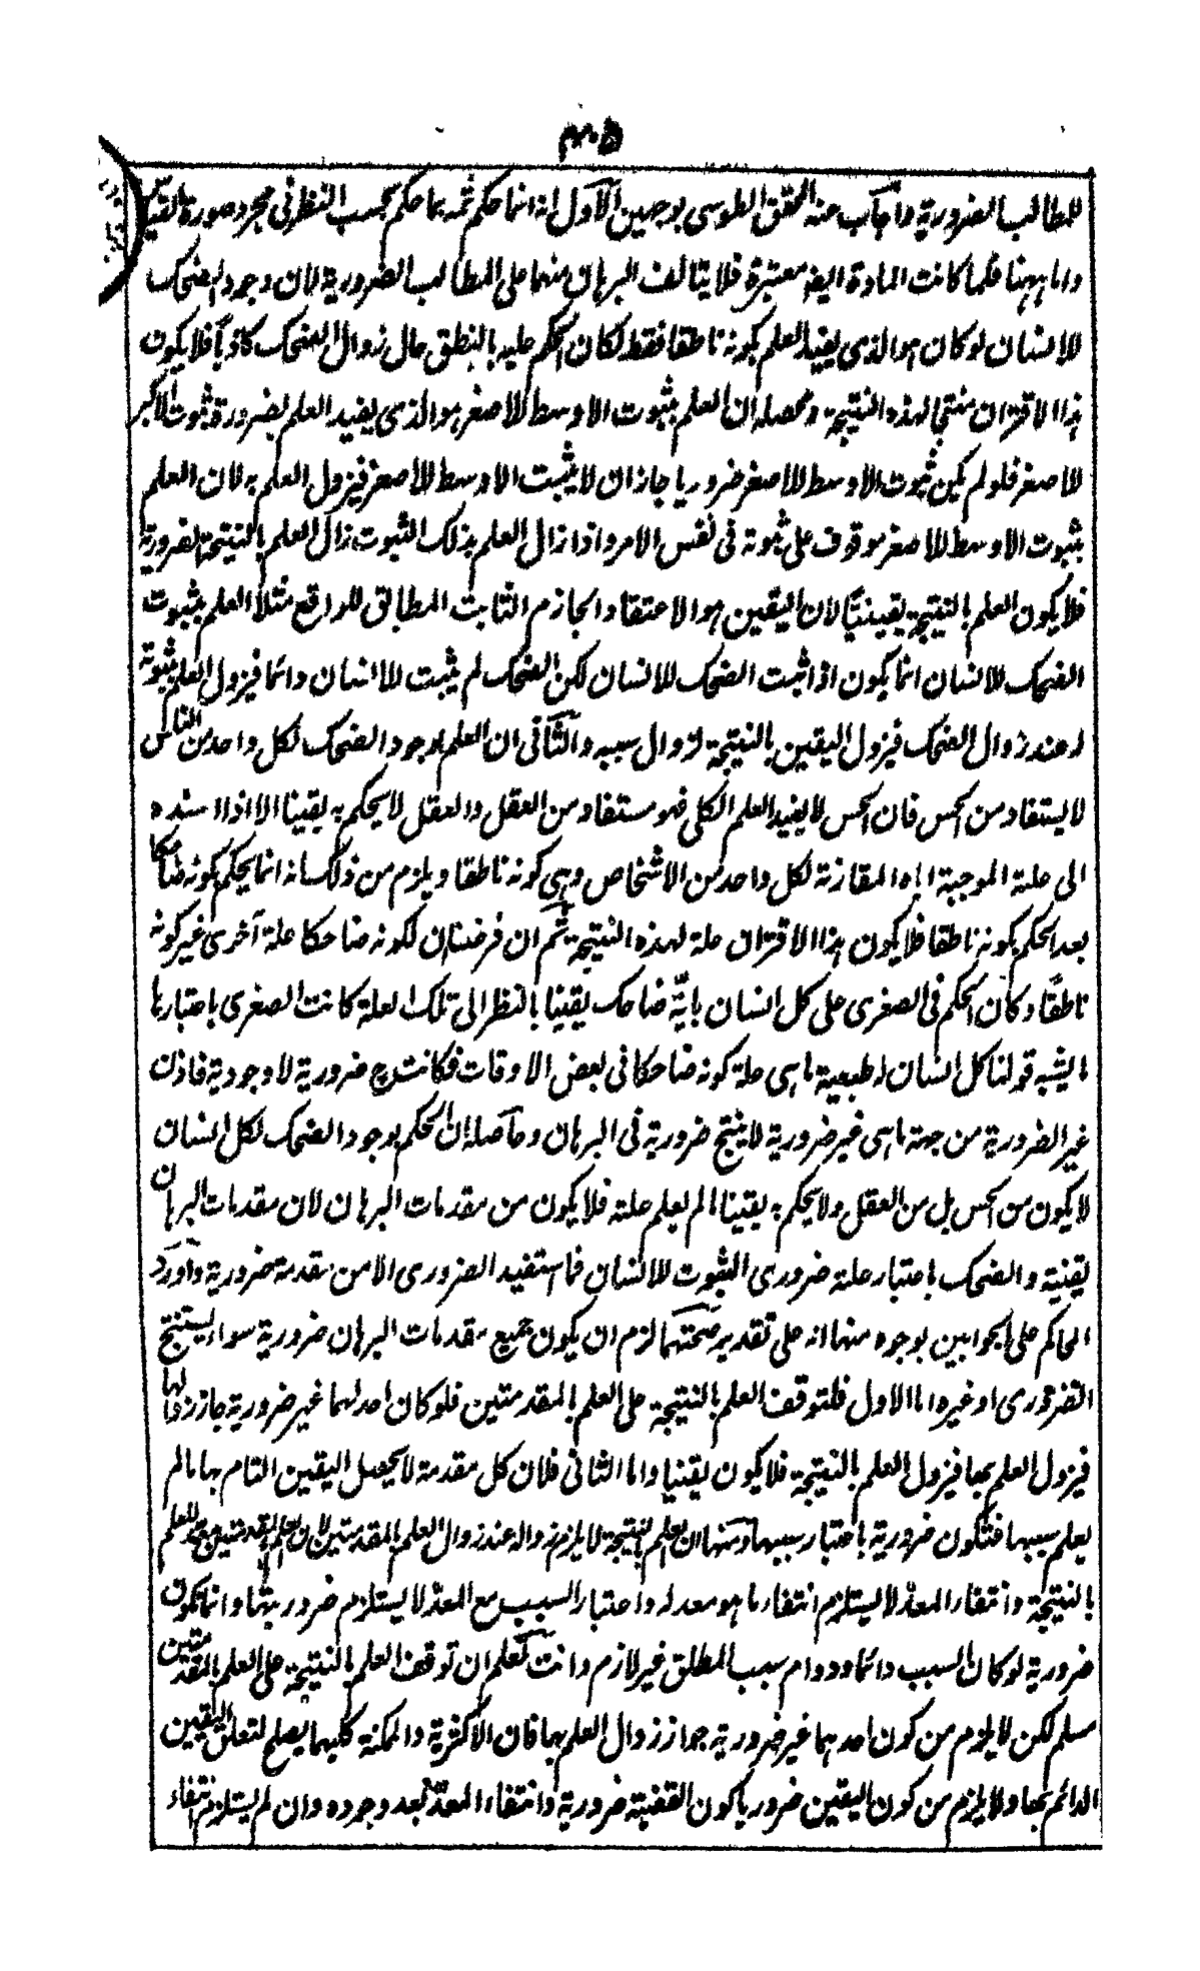 ٤٠٥
للمطالب الضرورية واجاب عنه المحقق الطوسى بوجهين الاول انه انما حكم ثمه بما حكم بحسب النظر فى مجرد صورة القياس
واما ههنا فلما كانت المادة ايضا معتبرة فلا يتالف البرهان منهما على المطالب الضرورية لان وجود الضحك
للانسان لو كان هو الذى يفيد العلم بكونه ناطقا فقط لكان الحكم عليه بالنطق حال زوال الضحك كاذبا فلا يكون
هذا الاقتران منتجا لهذه النتيجة ومحصله ان العلم بثبوت الاوسط للاصغر هو الذى يفيد العلم بضرورة ثبوت الاكبر
للاصغر فلو لم يكن ثبوت الاوسط للاصغر ضروريا جاز ان لا يثبت الاوسط للاصغر فيزول العلم به لان العلم
بثبوت الاوسط للاصغر موقوف على ثبوته فى نفس الامر واذا زال العلم بذلك الثبوت زال العلم بالنتيجة الضرورية
فلا يكون العلم بالنتيجة يقينيا لان اليقين هو الاعتقاد الجازم الثابت المطابق للواقع مثلا العلم بثبوت
الضحك للانسان انما يكون اذا ثبت الضحك للانسان لكن الضحك لم يثبت للانسان دائما فيزول العلم بثبوته
له عند زوال الضحك فيزول اليقين بالنتيجة لزوال سببه والثانى ان العلم بوجود الضحك لكل واحد من الناس
لا يستفاد من الحس فان الحس لا يفيد العلم الكلى فهو مستفاد من العقل والعقل لا يحكم به يقينا الا اذا اسنده
الى علته الموجبة اياه المقارنة لكل واحد من الاشخاص وهى كونه ناطقا ويلزم من ذلك انه انما يحكم بكونه ضاحكا
بعد الحكم بكونه ناطقا فلا يكون هذا الاقتران علة لهذه النتيجة ثم ان فرضنا ان لكونه ضاحكا علة آخرى غير كونه
ناطقا وكان الحكم فى الصغرى على كل انسان بانه ضاحك يقينا بالنظر الى تلك العلة كانت الصغرى باعتبارها
ما يشبه قولنا كل انسان له طبيعية ما هى علة كونه ضاحكا فى بعض الاوقات فكانت ح ضرورية لا وجودية فاذن
غير الضرورية من جهة ما هى غير ضرورية لا ينتج ضرورية فى البرهان وحاصله ان الحكم بوجود الضحك لكل انسان
لا يكون من الحس بل من العقل ولا يحكم به يقينا ما لم يعلم علته فلا يكون من مقدمات البرهان لان مقدمات البرهان
يقنية والضحك باعتبار علته ضرورى الثبوت للانسان فما استفيد الضرورى الا من مقدمة ضرورية واورد
الحاكم على الجوابين بوجوه منها انه على تقدير صحتهما لزم ان يكون جميع مقدمات البرهان ضرورية سواء يستنتج
الضرورى او غيره اما الاول فلتوقف العلم بالنتيجة على العلم بالمقدمتين فلو كان احدلهما غير ضرورية جاز زوالها
فيزول العلم بها فيزول العلم بالنتيجة فلا يكون يقنيا واما الثانى فلان كل مقدمة لا يحصل اليقين التام بها ما لم
يعلم سببها فتكون ضرورية باعتبار سببها ومنها ان العلم بالنتيجة لا يلزم زواله عند زوال العلم بالمقدمتين لان العلم بالمقدمتين معد للعلم
بالنتيجة وانتفاء المعد لا يستلزم انتفاء ما هو معد له واعتبار السبب مع المعد لا يستلزم ضروريتها وانما تكون
ضرورية لو كان السبب دائما ودوام سبب المطلق غير لازم وانت تعلم ان توقف العلم بالنتيجة على العلم بالمقدمتين
مسلم لكن لا يلزم من كون احدهما غير ضرورية جواز زوال العلم بها فان الاكثرية والممكنة كليهما يصلح لتعلق اليقين
الدائم بها ولا يلزم من كون اليقين ضروريا كون القضية ضرورية وانتفاء المعد بعد وجوده وان لم يستلزم انتفاء